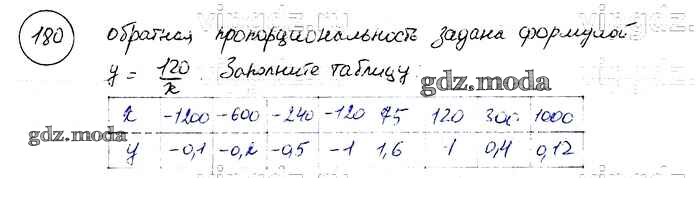 180 обратная пропорциональность задана формулой
y = 120/x. Заполните таблицу:
gdz.moscow
x -1200 -600 -240 -120 75 120 300 1000
gdz.moscow
y -0,1 -0,2 -0,5 -1 1,6 1 0,4 0,12